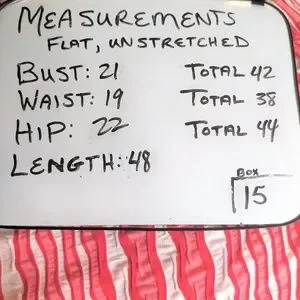 MEASUREMENTS
FLAT, UNSTRETCHED
BUST: 21 TOTAL 42
WAIST: 19 TOTAL 38
HIP: 22 TOTAL 44
LENGTH: 48
BOX
15